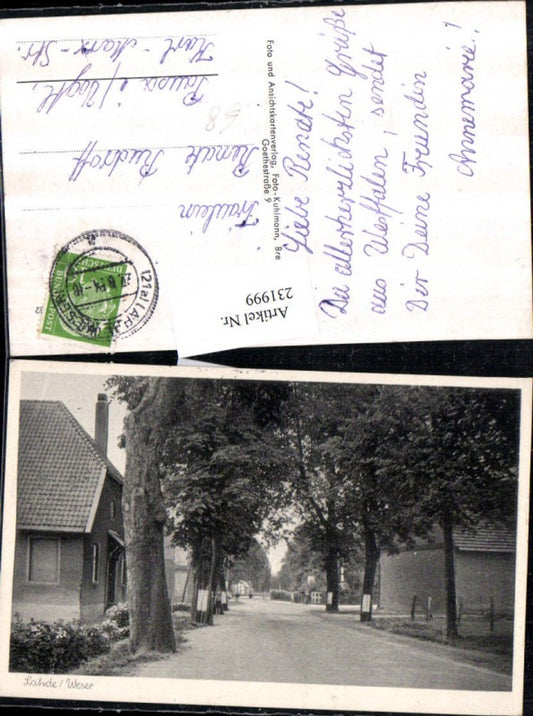 Liebe Renate!
Die allerherzlichsten Grüße
aus Westfalen, sendet
Dir Deine Freundin
Annemarie!
Foto und Ansichtskartenverlag, Foto-Kuhlmann, Bre
Goethestraße 9
Fräulein
Renate
Pausa i/Vogtl,
Karl-Marx-Str.
68
Artikel Nr.
231999
(21a) LAHDE (WESER)
DEUTSCHE
BUNDESPOST
Lahde/Weser